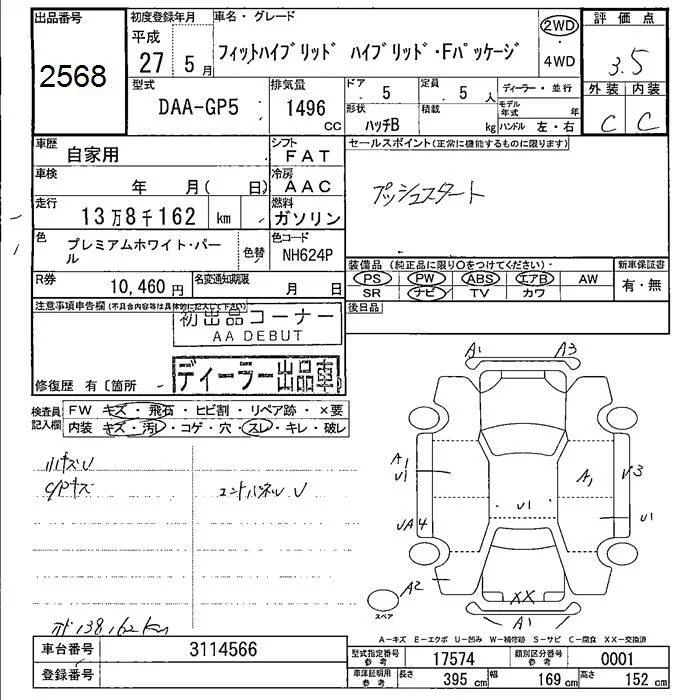 出品番号 初度登録年月 車名・グレード 評価点
2568 平成 27 5月 フィットハイブリッド ハイブリッド・Fパッケージ 2WD・4WD 3.5
型式 排気量 ドア 5 定員 5人 ディーラー・並行 外装 内装
DAA-GP5 1496 cc 形状 ハッチB 積載 kg モデル年式 年 ハンドル 左・右 C C
車歴 自家用 シフト FAT セールスポイント(正常に機能するものに限ります)
車検 年 月( 日) 冷房 AAC プッシュスタート
走行 13万8千162 km 燃料 ガソリン
色 プレミアムホワイト・パール 色替 色コード NH624P
装備品 (純正品に限り○をつけてください)・ 新車保証書
PS PW ABS エアB AW 有・無
SR ナビ TV カワ
R券 10,460円 名変通知期限 月 日
後日品
注意事項申告欄(不具合内容等は具体的に記入して下さい)
初出品コーナー
AA DEBUT
ディーラー出品車
修復歴 有〔箇所
検査員記入欄 FW キズ・飛石・ヒビ割・リペア跡・×要
内装 キズ・汚レ・コゲ・穴・スレ・キレ・破レ
A1 A3
小キズU
A1 U1 A1 U3
エンドパネルU U1 U1
UA4
A2
XX
スペア A1
138,162km
A-キズ E-エクボ U-凹み W-補修跡 S-サビ C-腐食 XX-交換済
車台番号 3114566 型式指定番号 参考 17574 類別区分番号 参考 0001
登録番号 車庫証明用 参考 長さ 395 cm 幅 169 cm 高さ 152 cm